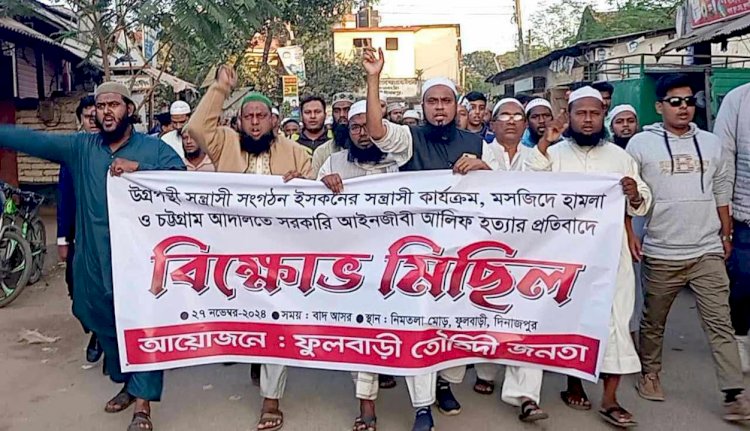 উগ্রপন্থী সন্ত্রাসী সংগঠন ইসকনের সন্ত্রাসী কার্যক্রম, মসজিদে হামলা
ও চট্টগ্রাম আদালতে সরকারি আইনজীবী আলিফ হত্যার প্রতিবাদে
বিক্ষোভ মিছিল
● ২৭ নভেম্বর-২০২৪ ● সময় : বাদ আসর ● স্থান : নিমতলা মোড়, ফুলবাড়ী, দিনাজপুর
আয়োজনে : ফুলবাড়ী তৌহিদী জনতা